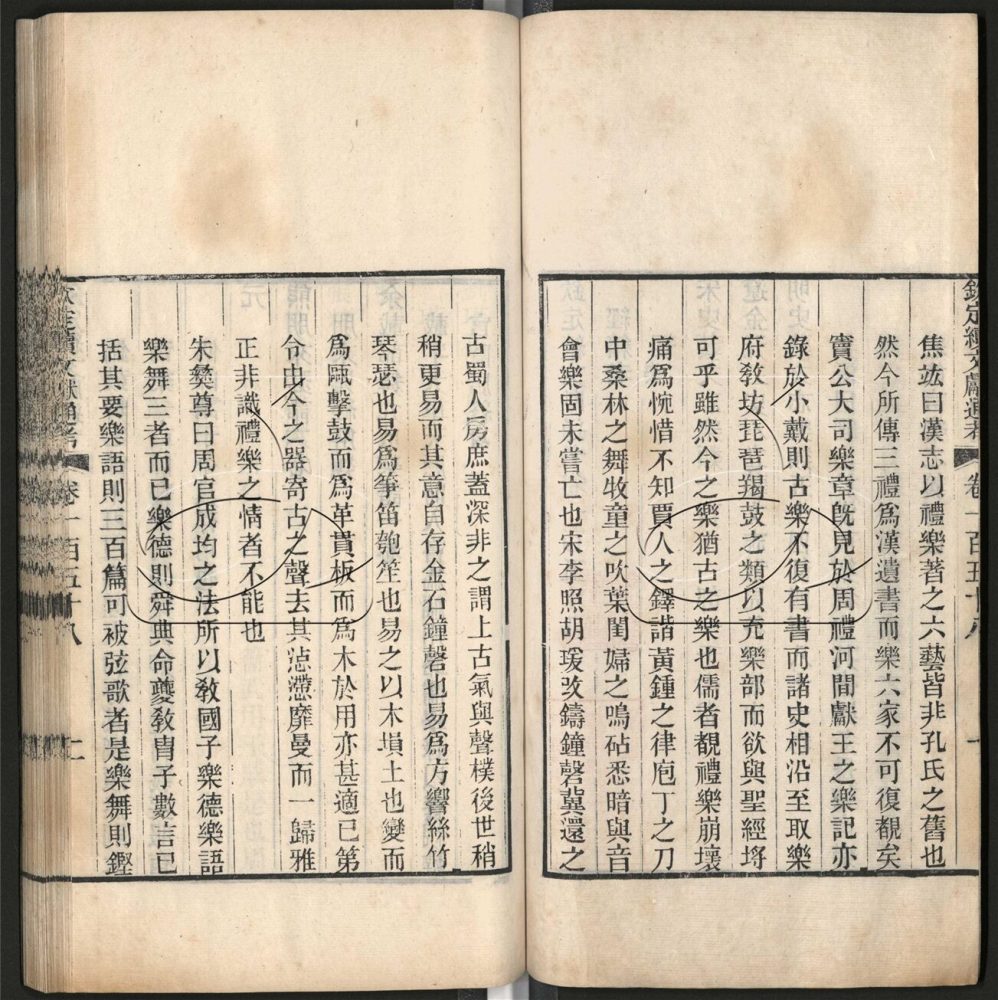 欽定續文獻通考 卷一百五十八 一
焦竑曰漢志以禮樂著之六藝皆非孔氏之舊也
然今所傳三禮爲漢遺書而樂六家不可復覩矣
竇公大司樂章旣見於周禮河間獻王之樂記亦
錄於小戴則古樂不復有書而諸史相沿至取樂
府敎坊琵琶羯鼓之類以充樂部而欲與聖經埒
可乎雖然今之樂猶古之樂也儒者覩禮樂崩壞
痛爲惋惜不知賈人之鐸諧黃鍾之律庖丁之刀
中桑林之舞牧童之吹葉閨婦之鳴砧悉暗與音
會樂固未嘗亡也宋李照胡瑗改鑄鐘磬冀還之
古蜀人房庶蓋深非之謂上古氣與聲樸後世稍
稍更易而其意自存金石鐘磬也易爲方響絲竹
琴瑟也易爲箏笛匏笙也易之以木塤土也變而
爲甌擊鼓而爲革貫板而爲木於用亦甚適已第
令由今之器寄古之聲去其惉懘靡曼而一歸雅
正非識禮樂之情者不能也
朱彝尊曰周官成均之法所以敎國子樂德樂語
樂舞三者而已樂德則舜典命夔敎胄子數言已
括其要樂語則三百篇可被弦歌者是樂舞則鏗
欽定續文獻通考 卷一百五十八